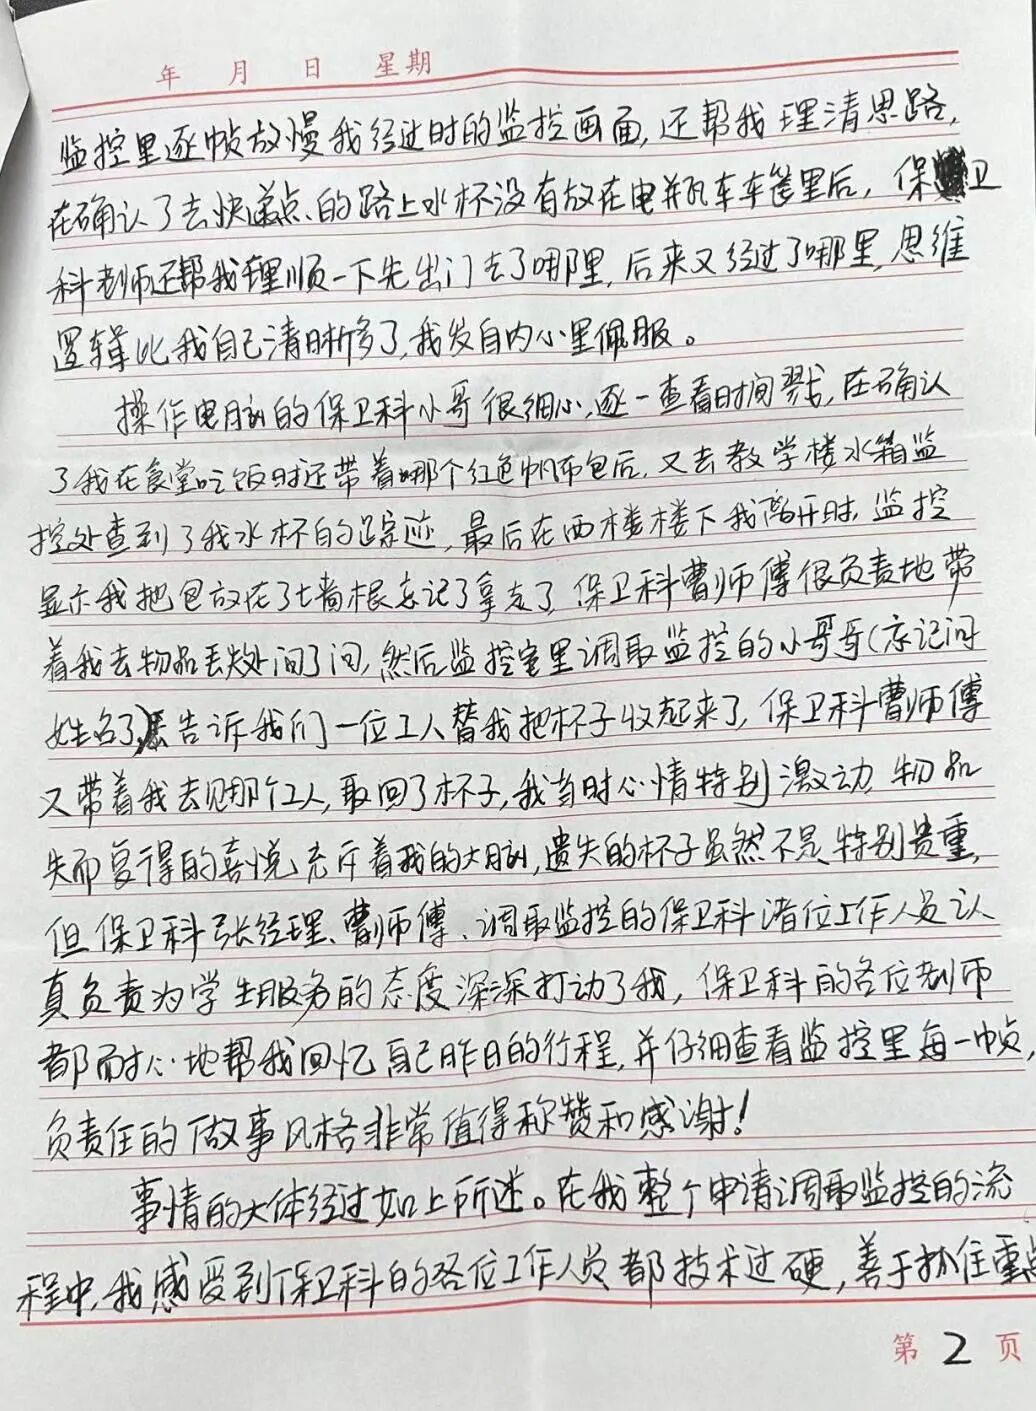 年 月 日 星期
监控里逐帧放慢我经过时的监控画面,还帮我理清思路,
在确认了去快递点的路上水杯没有放在电瓶车车筐里后,保卫
科老师还帮我理顺一下先出门去了哪里,后来又经过了哪里,思维
逻辑比我自己清晰多了,我发自内心里佩服。
操作电脑的保卫科小哥很细心,逐一查看时间戳,在确认
了我在食堂吃饭时还带着哪个红色帆布包后,又去教学楼水箱监
控处查到了我水杯的踪迹,最后在西楼楼下我离开时,监控
显示我把包放在了墙根忘记了拿走了,保卫科曹师傅很负责地带
着我去物品丢失处问了问,然后监控室里调取监控的小哥哥(忘记问
姓名了)告诉我们一位工人替我把杯子收起来了,保卫科曹师傅
又带着我去见那个工人,取回了杯子,我当时心情特别激动,物品
失而复得的喜悦充斥着我的大脑,遗失的杯子虽然不是特别贵重,
但保卫科张经理、曹师傅、调取监控的保卫科诸位工作人员认
真负责为学生服务的态度深深打动了我,保卫科的各位老师
都耐心地帮我回忆自己昨日的行程,并仔细查看监控里每一帧,
负责任的做事风格非常值得称赞和感谢!
事情的大体经过如上所述。在我整个申请调取监控的流
程中,我感受到保卫科的各位工作人员都技术过硬,善于抓住重点
第 2 页